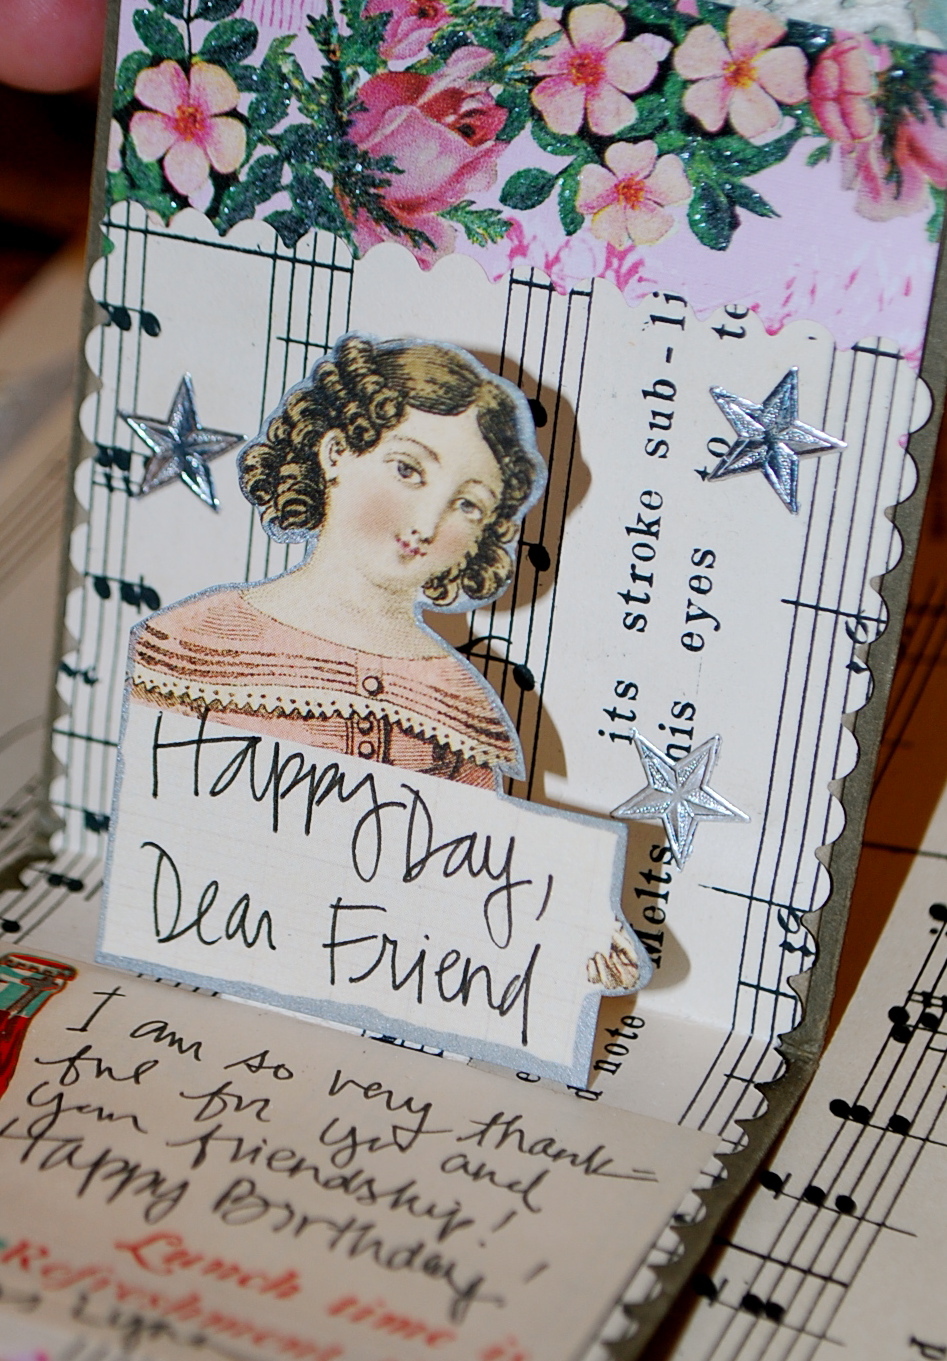 its stroke sub-li
his eyes to te
Melts
note
Happy Day,
Dear Friend
I am so very thank=
ful for you and
your friendship!
Happy Birthday!
Lunch time is
Refreshment